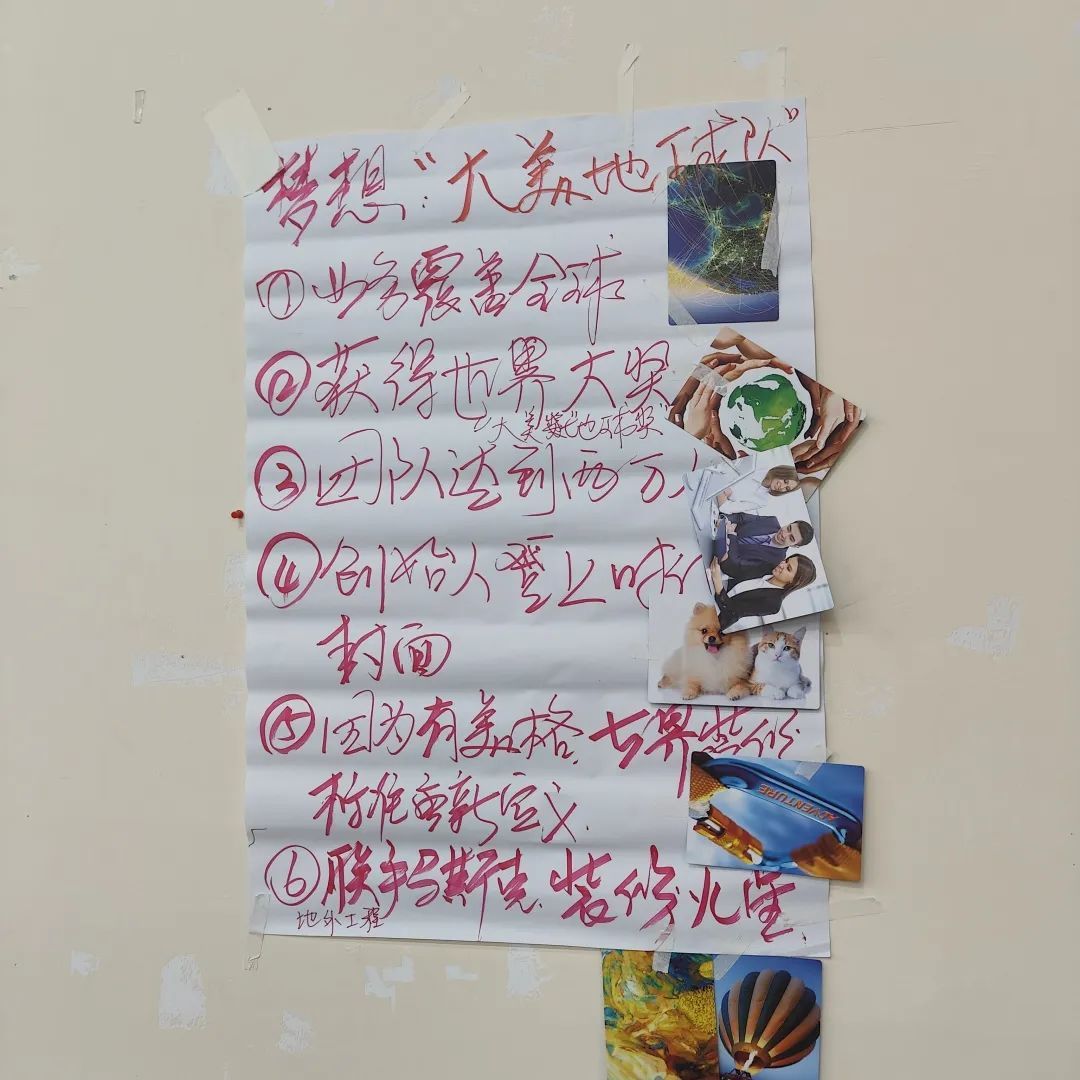 梦想“大美地球队”
①业务覆盖全球
②获得世界大奖
“大美装地球奖”
③团队达到两万
④创始人登上时代
封面
⑤因为有美格,世界装修
标准重新定义.
⑥联手马斯克.装修火星.
地外工程
ADVENTURE